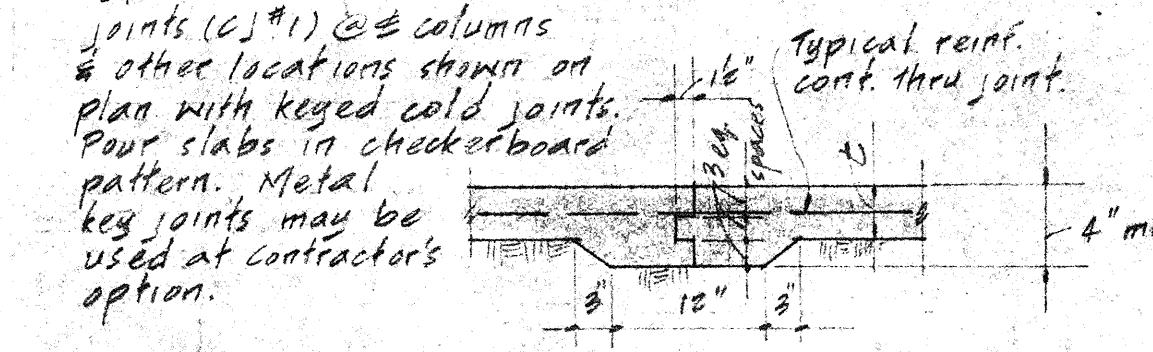 joints (CJ #1) @ ℄ columns
& other locations shown on
plan with keyed cold joints.
Pour slabs in checkerboard
pattern. Metal
key joints may be
used at contractor's
option.
1½"
Typical reinf.
cont. thru joint.
3 eq.
spaces
t
4"
3"
12"
3"